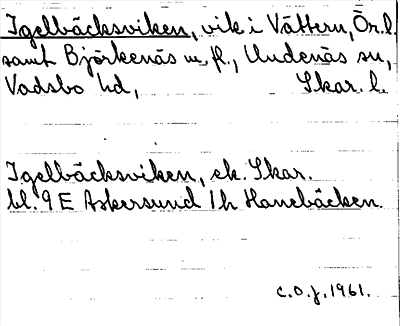 Igelbäcksviken, vik i Vättern, Ör. l.
samt Björkenäs m. fl., Undenäs sn,
Vadsbo hd, Skar. l.
Igelbäcksviken, ek. Skar.
bl. 9 E Askersund 1h Hanebäcken.
C.O.J. 1961.